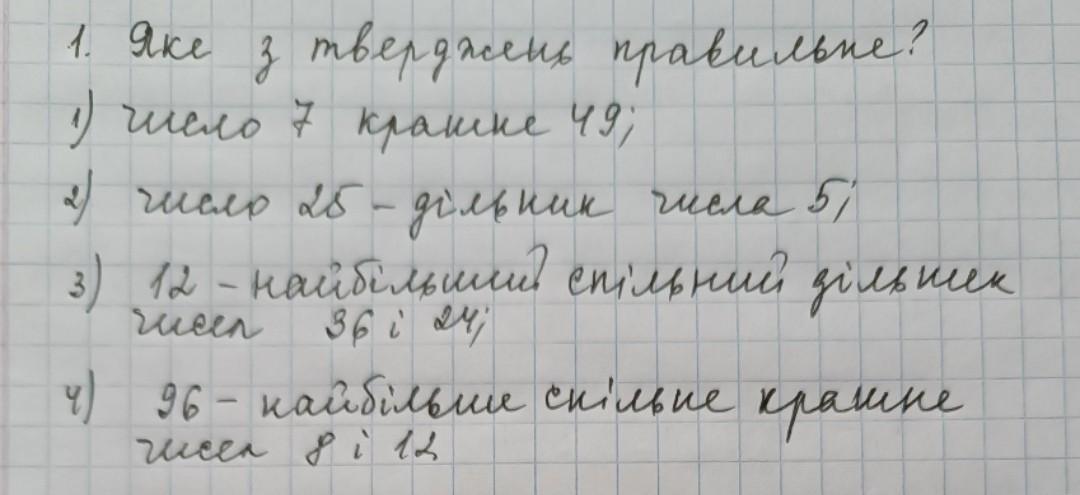 1. Яке з тверджень правильне?
1) число 7 кратне 49;
2) число 25 – дільник числа 5;
3) 12 – найбільший спільний дільник
чисел 36 і 24;
4) 96 – найбільше спільне кратне
чисел 8 і 12